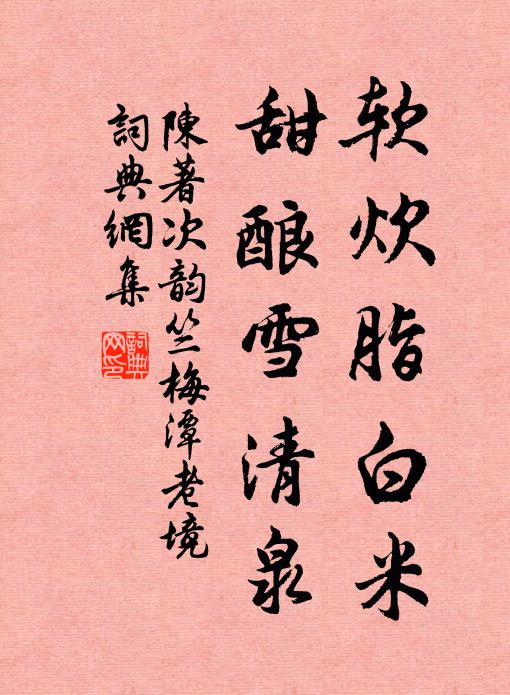 软炊脂白米
甜酿雪清泉
陳著次韵竺梅潭老境
詞典網集
詞典网印